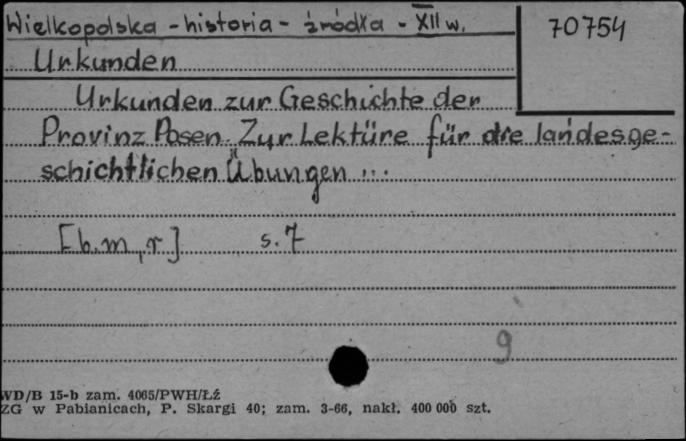 Wielkopolska - historia - źródła - XII w.
70754
Urkunden
Urkunden zur Geschichte der
Provinz Posen. Zur Lektüre für die landesge-
schichtlichen Übungen ...
[b.m,r] s. 7
9
WD/B 15-b zam. 4065/PWH/Łź
ZG w Pabianicach, P. Skargi 40; zam. 3-66, nakł. 400 000 szt.